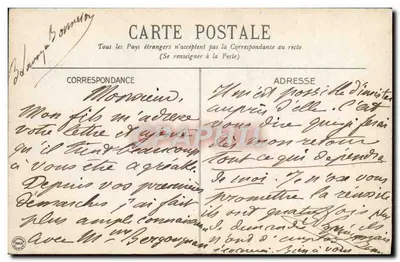 CARTE POSTALE
Tous les Pays étrangers n'acceptent pas la Correspondance au recto
(Se renseigner à la Poste)
CORRESPONDANCE
Monsieur,
Mon fils m'adresse
votre lettre et
qu'il tient beaucoup
à vous être agréable.
Depuis vos premières
démarches, j'ai fait
plus ample connaissance
avec Mme
ADRESSE
Il m'est possible d'insister
auprès d'elle. C'est
vous dire que je ferai
dès mon retour
tout ce qui dépendra
de moi. Je ne vous
promettre la réussite
ils ont quatre fois plus
de demandes qu'ils
n'ont d'
Bien à vous